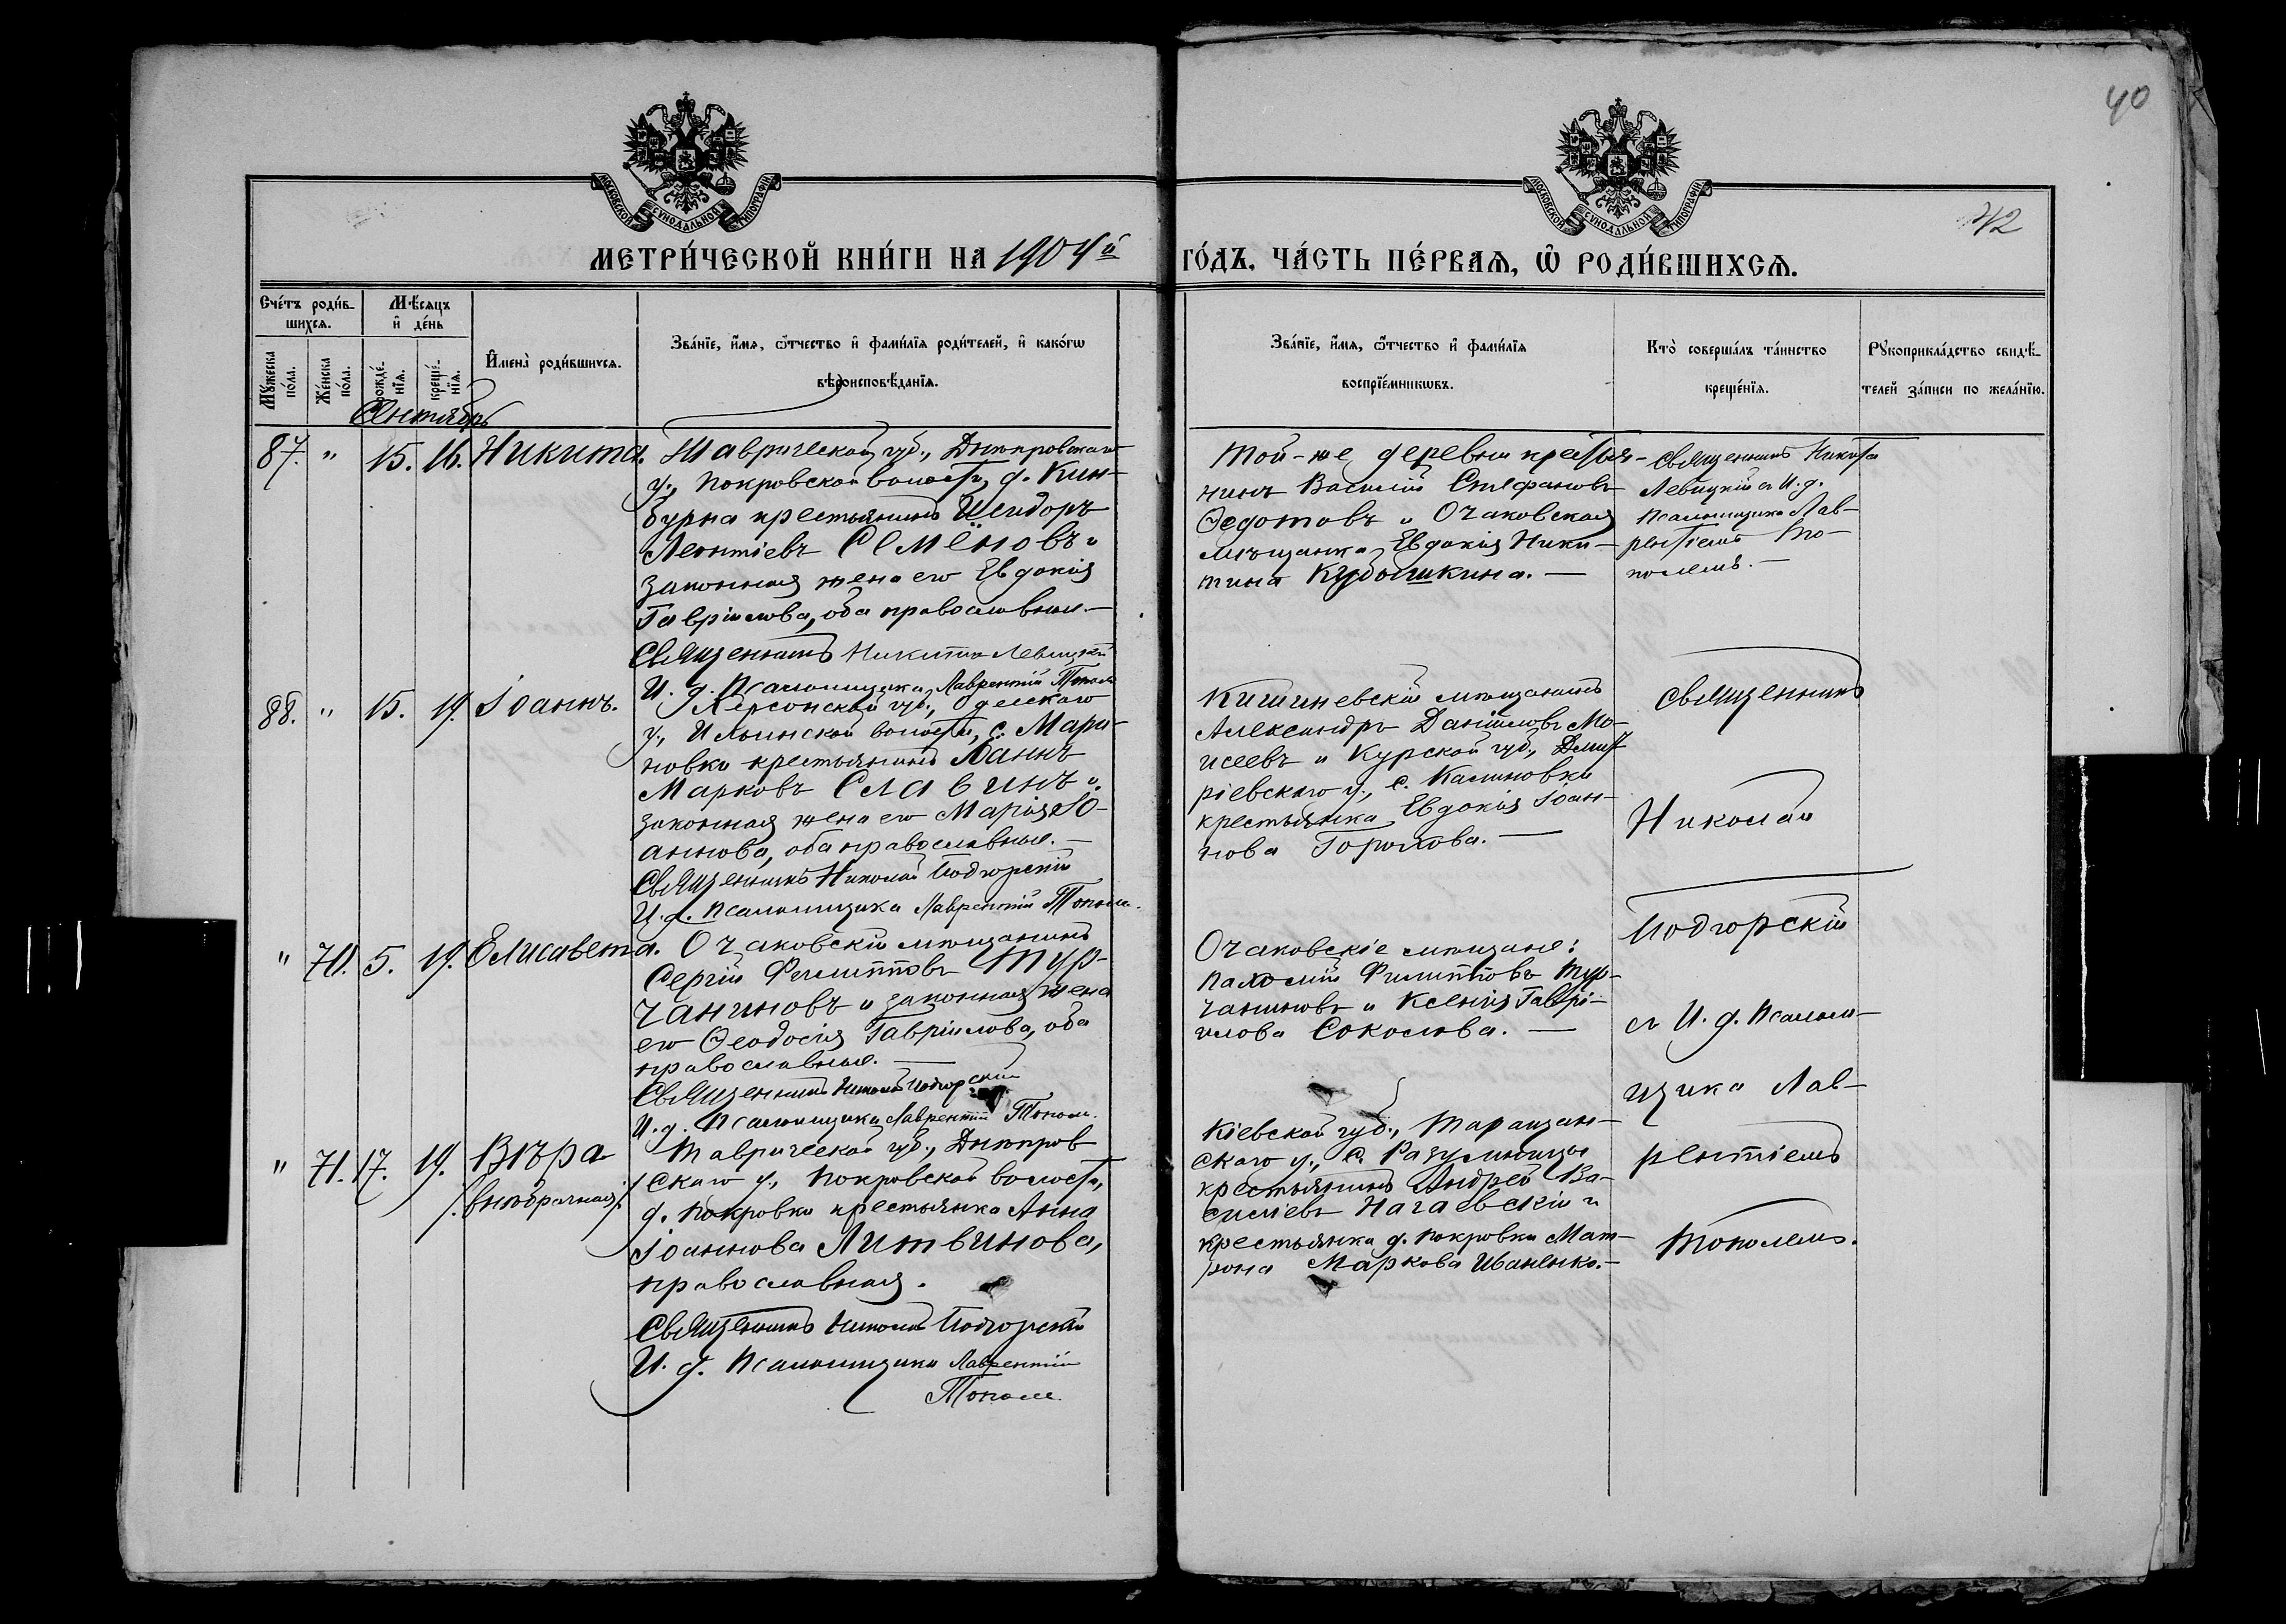 40
42
МОСКОВСКОЙ СУНОДАЛЬНОЙ ТИПОГРАФІИ
МОСКОВСКОЙ СУНОДАЛЬНОЙ ТИПОГРАФІИ
МЕТРИ́ЧЕСКОЙ КНИ́ГИ НА 1904й ГО́ДЪ, ЧА́СТЬ ПЕ́РВАѦ, Ѡ҆ РОДИ́ВШИХСѦ.
Сче́тъ роди́вшихсѧ.
Мѣ́сѧцъ и҆ де́нь
Мꙋ́жеска по́ла.
Же́нска по́ла.
рожде́нїѧ.
креще́нїѧ.
И҆мена̀ роди́вшихсѧ.
Зва́нїе, и҆́мѧ, ѻ҆́тчество и҆ фами́лїѧ роди́телей, и҆ како́гѡ
вѣроисповѣ́данїѧ.
Зва́нїе, и҆́мѧ, ѻ҆́тчество и҆ фами́лїѧ
воспрїе́мникѡвъ.
Кто̀ соверша́лъ та́инство
креще́нїѧ.
Рꙋкоприкла́дство свидѣ́-
телей за́писи по жела́нїю.
Сентябрь
87. " 15. 16. Никита.
Таврической губ., Днѣпровскаго
у., Покровской волости, д. Кин-
бурна крестьянинъ Исидоръ
Леонтіевъ Семёновъ и
законная жена его Евдокія
Гавріилова, оба православные.—
Священникъ Никита Левицкій
И. д. Псаломщика Лаврентій Тополь
Той-же деревни крестья-
нинъ Василій Стефановъ
Ѳедотовъ и Очаковская
мѣщанка Евдокія Ники-
тина Кудышкина.—
Священникъ Никита
Левицкій съ И. д.
Псаломщика Лав-
рентіемъ То-
полемъ.—
88. " 15. 19. Іоаннъ.
Херсонской губ., Одесскаго
у., Ильинской волости, с. Мари-
новки крестьянинъ Іоаннъ
Марковъ Славинъ и
законная жена его Марія Іо-
аннова, оба православные.—
Священникъ Николай Подгорскій
И. д. Псаломщика Лаврентій Тополь.
Кишиневскій мѣщанинъ
Александръ Даніиловъ Мо-
исеевъ и Курской губ., Дмит-
ріевскаго у., с. Калиновки
крестьянка Евдокія Іоан-
нова Горохова.—
Священникъ
Николай
Подгорскій
съ И. д. Псалом-
щика Лав-
рентіемъ
Тополемъ.
" 70. 5. 19. Елисавета.
Очаковскій мѣщанинъ
Сергій Филипповъ Тур-
чаниновъ и законная жена
его Ѳеодосія Гавріилова, оба
православные.—
Священникъ Николай Подгорскій
И. д. Псаломщика Лаврентій Тополь.
Очаковскіе мѣщане:
Пахомій Филипповъ Тур-
чаниновъ и Ксенія Гаврі-
илова Соколова.—
" 71. 17. 19. Вѣра
/.внѣбрачная./
Таврической губ., Днѣпров
скаго у., Покровской волости,
д. Покровки крестьянка Анна
Іоаннова Литвинова,
православная.
Священникъ Николай Подгорскій
И. д. Псаломщика Лаврентій
Тополь.
Кіевской губ., Таращан-
скаго у., с. Разумницы
крестьянинъ Андрей Ва-
силіевъ Нагаевскій и
крестьянка д. Покровки Мат-
рона Маркова Иваненко.—